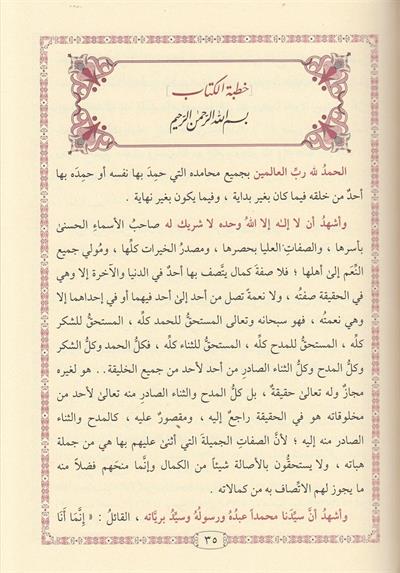 [خطبة الكتاب]
بسم الله الرحمن الرحيم
الحمدُ لله ربِّ العالمين بجميع محامده التي حمِدَ بها نفسه أو حمِدَه بها
أحدٌ من خلقه فيما كان بغير بداية ، وفيما يكون بغير نهاية .
وأشهدُ أن لا إلٰه إلا اللهُ وحده لا شريك له صاحبُ الأسماءِ الحسنىٰ
بأسرها ، والصفاتِ العليا بحصرها ، ومصدرُ الخيرات كلِّها ، ومُولي جميع
النِّعَم إلىٰ أهلها ؛ فلا صفةَ كمال يتَّصف بها أحدٌ في الدنيا والآخرة إلا وهي
في الحقيقة صفتُه ، ولا نعمةً تصل من أحد إلىٰ أحد فيهما أو في إحداهما إلا
وهي نعمتُه ، فهو سبحانه وتعالى المستحق للحمد كلِّه ، المستحقُّ للشكر
كلِّه ، المستحقُّ للمدح كلِّه ، المستحقُّ للثناء كلِّه ، فكلُّ الحمد وكلُّ الشكر
وكلُّ المدح وكلُّ الثناء الصادرِ من أحد لأحد من جميع الخليقة . . هو لغيره
مجازٌ وله تعالىٰ حقيقةٌ ، بل كلُّ المدح والثناء الصادر منه تعالىٰ لأحد من
مخلوقاته هو في الحقيقة راجعٌ إليه ، ومقصورٌ عليه ، كالمدح والثناء
الصادر منه إليه ؛ لأنَّ الصفاتِ الجميلةَ التي أثنىٰ عليهم بها هي من جملة
هباته ، ولا يستحقُّون بالأصالة شيئاً من الكمال وإنَّما منحَهم فضلاً منه
ما يجوز لهم الاتِّصاف به من كمالاته .
وأشهدُ أنَّ سيِّدَنا محمداً عبدُهُ ورسولُهُ وسيِّدُ بريَّاته ، القائلُ : « إِنَّمَا أَنَا
٣٥